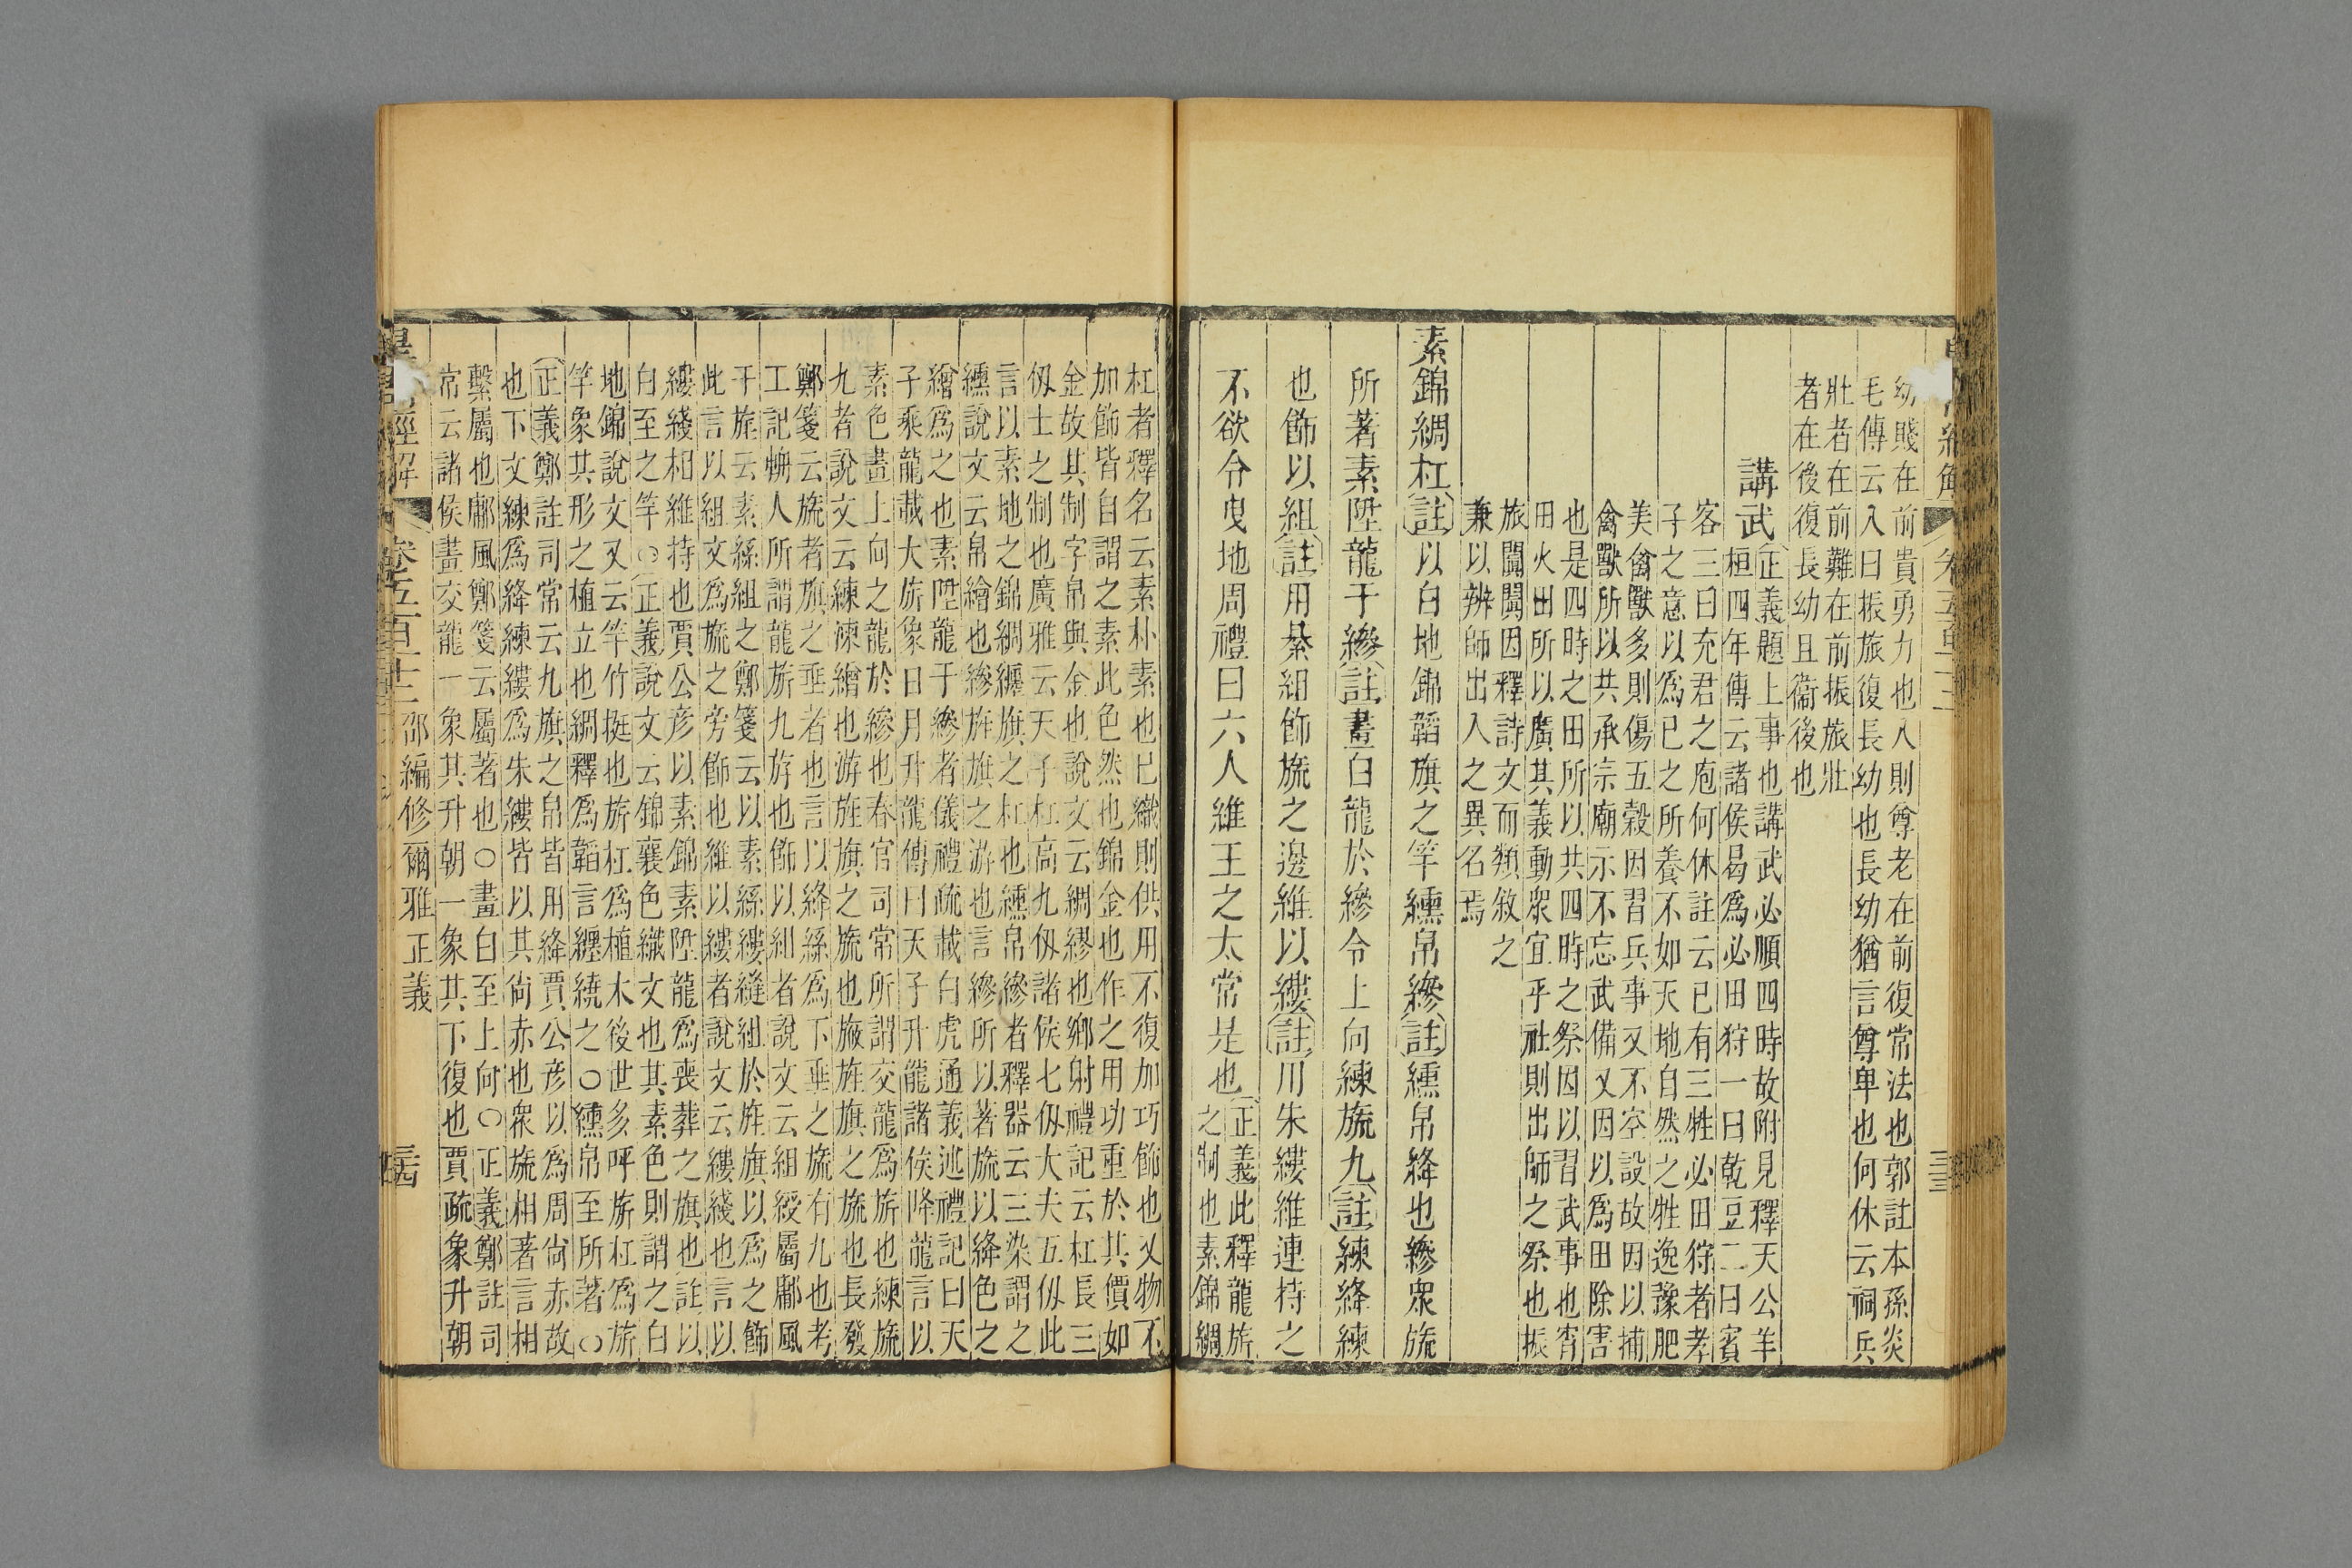 幼賤在前貴勇力也入則尊老在前復常法也郭註本孫炎
毛傳云入曰振旅復長幼也長幼猶言尊卑也何休云祠兵
壯者在前難在前振旅壯
者在後復長幼且衞後也
講武
正義題上事也講武必順四時故附見釋天公羊
桓四年傳云諸侯曷爲必田狩一曰乾豆二曰賓
客三曰充君之庖何休註云已有三牲必田狩者孝
子之意以爲已之所養不如天地自然之牲逸豫肥
美禽獸多則傷五穀因習兵事又不空設故因以捕
禽獸所以共承宗廟示不忘武備又因以爲田除害
也是四時之田所以共四時之祭因以習武事也宵
田火田所以廣其義動衆宜乎社則出師之祭也振
旅闐闐因釋詩文而類敘之
兼以辨師出入之異名焉
素錦綢杠註以白地錦韜旗之竿纁帛縿註纁帛絳也縿衆旒
所著素陞龍于縿註畫白龍於縿令上向練旒九註練絳練
也飾以組註用綦組飾旒之邊維以縷註川朱縷維連持之
不欲令曳地周禮曰六人維王之太常是也
正義此釋龍旂
之制也素錦綢
杠者釋名云素朴素也已織則供用不復加巧飾也又物不
加飾皆自謂之素此色然也錦金也作之用功重於其價如
金故其制字帛與金也說文云綢繆也鄉射禮記云杠長三
仭士之制也廣雅云天子杠高九仭諸侯七仭大夫五仭此
言以素地之錦綢纏旗之杠也纁帛縿者釋器云三染謂之
纁說文云帛繒也縿旌旗之游也言縿所以著旒以絳色之
繒爲之也素陞龍于縿者儀禮疏載白虎通義述禮記曰天
子乘龍載大旂象日月升龍傳曰天子升龍諸侯降龍言以
素色畫上向之龍於縿也春官司常所謂交龍爲旂也練旒
九者說文云練湅繒也游旌旗之旒也旒旌旗之旒也長發
鄭箋云旒者旗之垂者也言以絳絲爲下垂之旒有九也考
工記輈人所謂龍旂九斿也飾以組者說文云組綬屬鄘風
干旄云素絲組之鄭箋云以素絲縷縫組於旌旗以爲之飾
此言以組文爲旒之旁飾也維以縷者說文云縷綫也言以
縷綫相維持也賈公彥以素錦素陞龍爲喪葬之旗也註以
白至之竿○正義說文云錦襄色織文也其素色則謂之白
地錦說文又云竿竹挺也旂杠爲植木後世多呼旂杠爲旂
竿象其形之植立也綢釋爲韜言纏繞之○纁帛至所著○
正義鄭註司常云九旗之帛皆用絳賈公彥以爲周尙赤故
也下文練爲絳練縷爲朱縷皆以其尙赤也衆旒相著言相
繫屬也鄘風鄭箋云屬著也○畫白至上向○正義鄭註司
常云諸侯畫交龍一象其升朝一象其下復也賈疏象升朝
皇淸經解
卷五百十三
邵編修爾雅正義